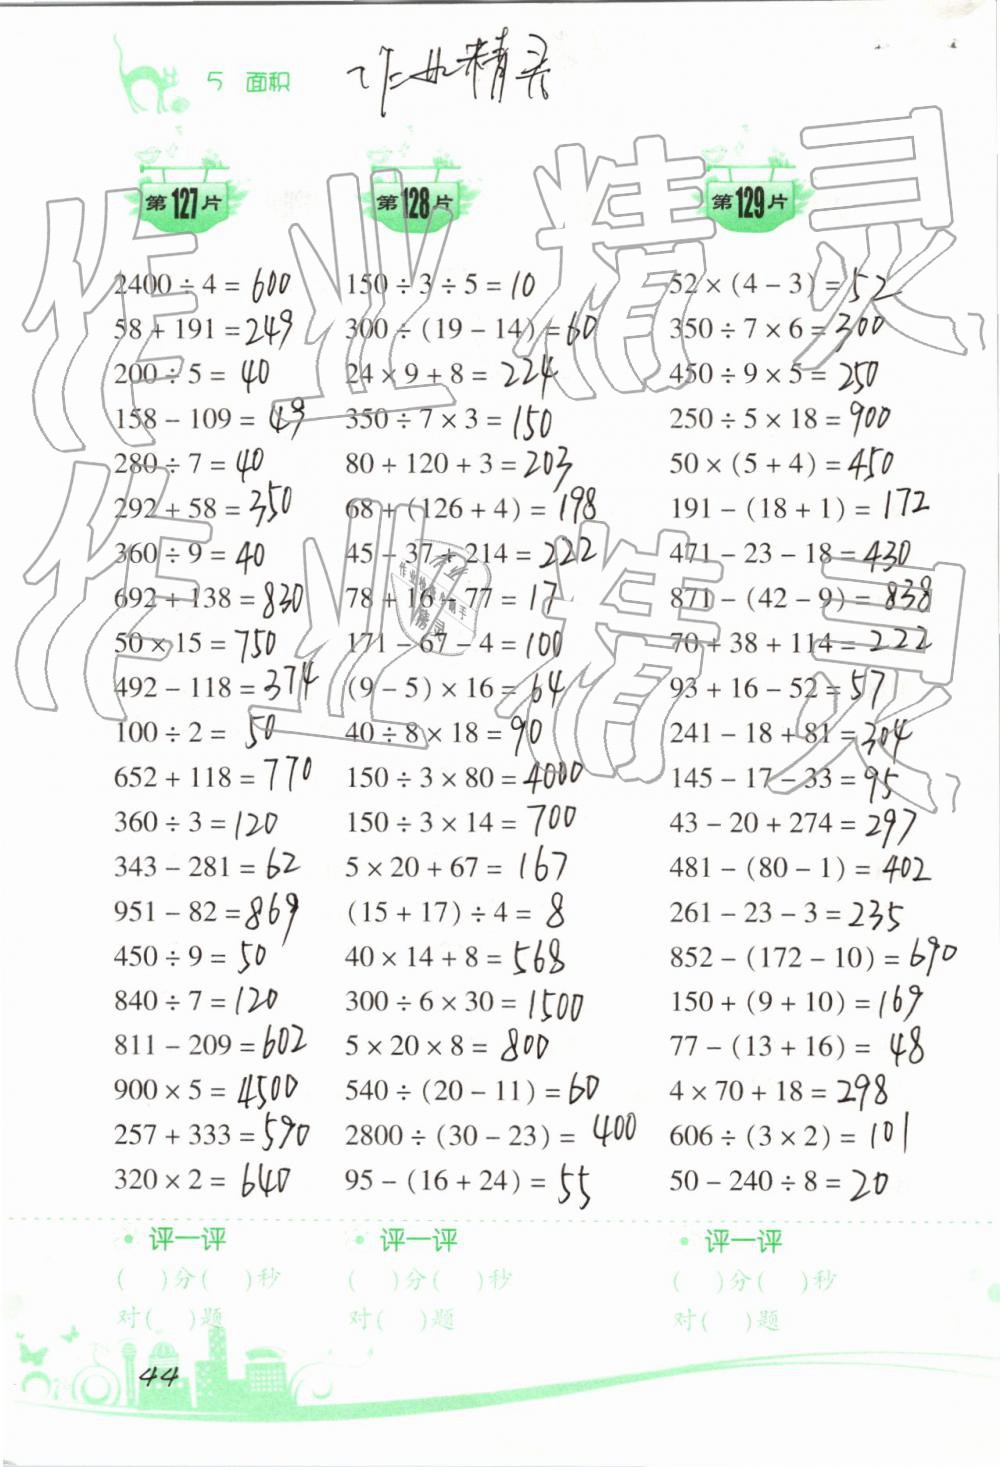 5 面积
作业精灵
第127片
2400÷4=600
58+191=249
200÷5=40
158-109=49
280÷7=40
292+58=350
360÷9=40
692+138=830
50×15=750
492-118=374
100÷2=50
652+118=770
360÷3=120
343-281=62
951-82=869
450÷9=50
840÷7=120
811-209=602
900×5=4500
257+333=590
320×2=640
评一评
( )分( )秒
对( )题
第128片
150÷3÷5=10
300÷(19-14)=60
24×9+8=224
350÷7×3=150
80+120+3=203
68+(126+4)=198
45-37+214=222
78+16-77=17
171-67-4=100
(9-5)×16=64
40÷8×18=90
150÷3×80=4000
150÷3×14=700
5×20+67=167
(15+17)÷4=8
40×14+8=568
300÷6×30=1500
5×20×8=800
540÷(20-11)=60
2800÷(30-23)=400
95-(16+24)=55
评一评
( )分( )秒
对( )题
第129片
52×(4-3)=52
350÷7×6=300
450÷9×5=250
250÷5×18=900
50×(5+4)=450
191-(18+1)=172
471-23-18=430
871-(42-9)=838
70+38+114=222
93+16-52=57
241-18+81=304
145-17-33=95
43-20+274=297
481-(80-1)=402
261-23-3=235
852-(172-10)=690
150+(9+10)=169
77-(13+16)=48
4×70+18=298
606÷(3×2)=101
50-240÷8=20
评一评
( )分( )秒
对( )题
44
作业精灵
作业精灵